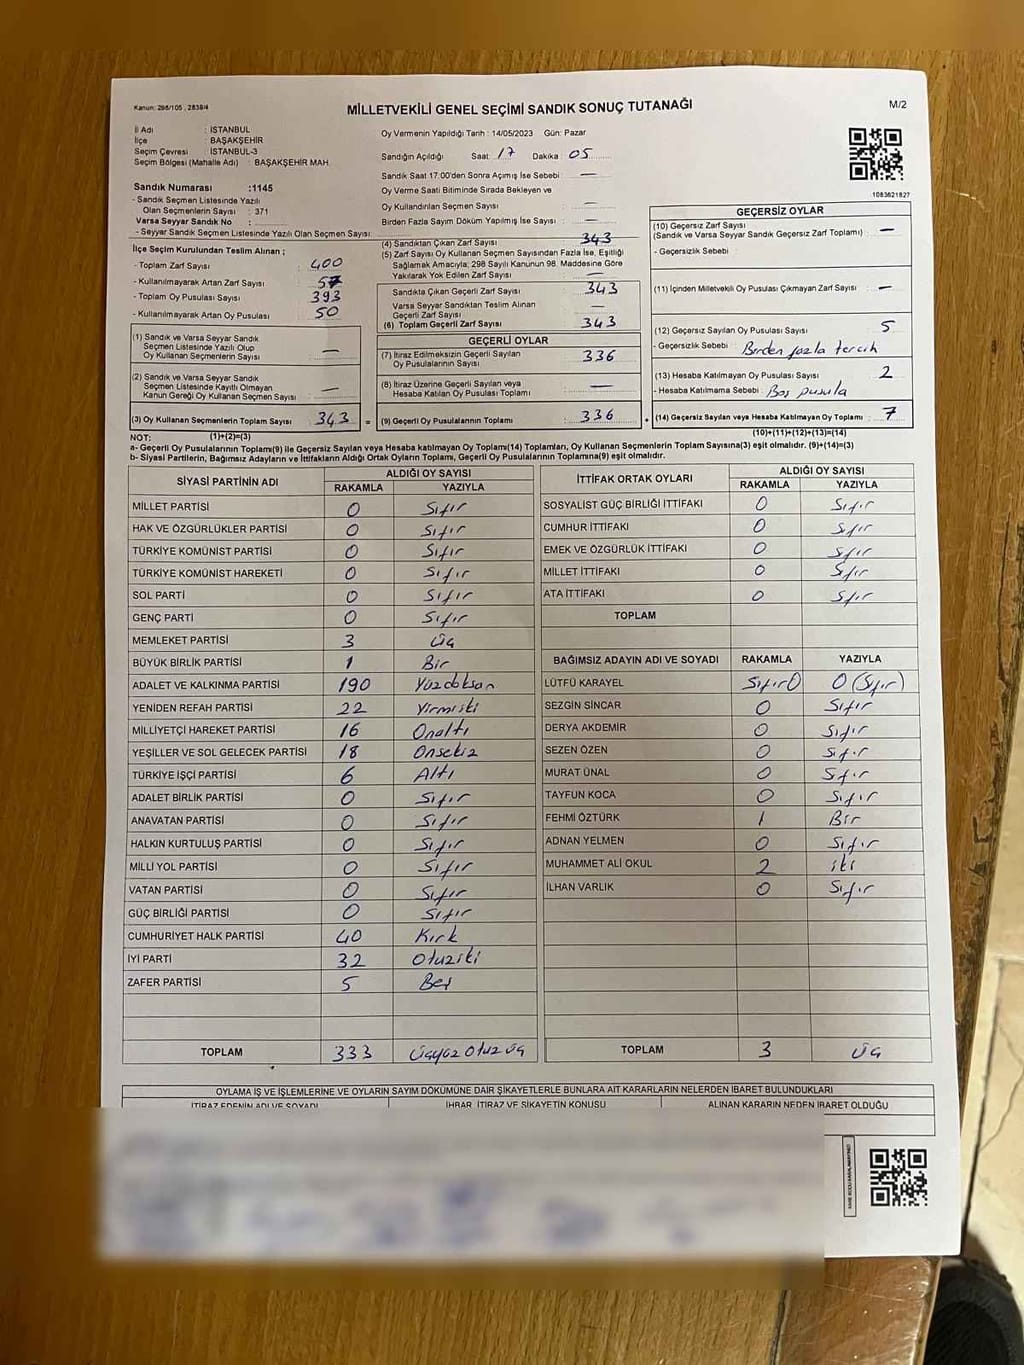 Kanun: 298/105 , 2839/4
MİLLETVEKİLİ GENEL SEÇİMİ SANDIK SONUÇ TUTANAĞI
M/2
İl Adı : İSTANBUL
İlçe : BAŞAKŞEHİR
Seçim Çevresi : İSTANBUL-3
Seçim Bölgesi (Mahalle Adı) : BAŞAKŞEHİR MAH.
Sandık Numarası :1145
- Sandık Seçmen Listesinde Yazılı
Olan Seçmenlerin Sayısı : 371
Varsa Seyyar Sandık No :
- Seyyar Sandık Seçmen Listesinde Yazılı Olan Seçmen Sayısı:
İlçe Seçim Kurulundan Teslim Alınan ;
- Toplam Zarf Sayısı 400
- Kullanılmayarak Artan Zarf Sayısı 57
- Toplam Oy Pusulası Sayısı 393
- Kullanılmayarak Artan Oy Pusulası 50
(1) Sandık ve Varsa Seyyar Sandık
Seçmen Listesinde Yazılı Olup
Oy Kullanan Seçmenlerin Sayısı —
(2) Sandık ve Varsa Seyyar Sandık
Seçmen Listesinde Kayıtlı Olmayan
Kanun Gereği Oy Kullanan Seçmen Sayısı —
(3) Oy Kullanan Seçmenlerin Toplam Sayısı 343 =
(1)+(2)=(3)
Oy Vermenin Yapıldığı Tarih : 14/05/2023 Gün: Pazar
Sandığın Açıldığı Saat: 17 Dakika 05
Sandık Saat 17.00'den Sonra Açılmış İse Sebebi : —
Oy Verme Saati Bitiminde Sırada Bekleyen ve
Oy Kullandırılan Seçmen Sayısı : —
Birden Fazla Sayım Döküm Yapılmış İse Sayısı : —
(4) Sandıktan Çıkan Zarf Sayısı 343
(5) Zarf Sayısı Oy Kullanan Seçmen Sayısından Fazla İse, Eşitliği
Sağlamak Amacıyla; 298 Sayılı Kanunun 98. Maddesine Göre
Yakılarak Yok Edilen Zarf Sayısı —
Sandıkta Çıkan Geçerli Zarf Sayısı 343
Varsa Seyyar Sandıktan Teslim Alınan
Geçerli Zarf Sayısı —
(6) Toplam Geçerli Zarf Sayısı 343
GEÇERLİ OYLAR
(7) İtiraz Edilmeksizin Geçerli Sayılan
Oy Pusulalarının Sayısı 336
(8) İtiraz Üzerine Geçerli Sayılan veya
Hesaba Katılan Oy Pusulası Toplamı —
(9) Geçerli Oy Pusulalarının Toplamı 336 +
1083621827
GEÇERSİZ OYLAR
(10) Geçersiz Zarf Sayısı
(Sandık ve Varsa Seyyar Sandık Geçersiz Zarf Toplamı) : —
- Geçersizlik Sebebi :
(11) İçinden Milletvekili Oy Pusulası Çıkmayan Zarf Sayısı : —
(12) Geçersiz Sayılan Oy Pusulası Sayısı : 5
- Geçersizlik Sebebi : Birden fazla tercih
(13) Hesaba Katılmayan Oy Pusulası Sayısı : 2
- Hesaba Katılmama Sebebi : Boş pusula
(14) Geçersiz Sayılan veya Hesaba Katılmayan Oy Toplamı : 7
(10)+(11)+(12)+(13)=(14)
NOT:
a- Geçerli Oy Pusulalarının Toplamı(9) ile Geçersiz Sayılan veya Hesaba katılmayan Oy Toplamı(14) Toplamları, Oy Kullanan Seçmenlerin Toplam Sayısına(3) eşit olmalıdır. (9)+(14)=(3)
b- Siyasi Partilerin, Bağımsız Adayların ve İttifakların Aldığı Ortak Oyların Toplamı, Geçerli Oy Pusulalarının Toplamına(9) eşit olmalıdır.
SİYASİ PARTİNİN ADI ALDIĞI OY SAYISI
RAKAMLA YAZIYLA
MİLLET PARTİSİ 0 Sıfır
HAK VE ÖZGÜRLÜKLER PARTİSİ 0 Sıfır
TÜRKİYE KOMÜNİST PARTİSİ 0 Sıfır
TÜRKİYE KOMÜNİST HAREKETİ 0 Sıfır
SOL PARTİ 0 Sıfır
GENÇ PARTİ 0 Sıfır
MEMLEKET PARTİSİ 3 Üç
BÜYÜK BİRLİK PARTİSİ 1 Bir
ADALET VE KALKINMA PARTİSİ 190 Yüzdoksan
YENİDEN REFAH PARTİSİ 22 Yirmiiki
MİLLİYETÇİ HAREKET PARTİSİ 16 Onaltı
YEŞİLLER VE SOL GELECEK PARTİSİ 18 Onsekiz
TÜRKİYE İŞÇİ PARTİSİ 6 Altı
ADALET BİRLİK PARTİSİ 0 Sıfır
ANAVATAN PARTİSİ 0 Sıfır
HALKIN KURTULUŞ PARTİSİ 0 Sıfır
MİLLİ YOL PARTİSİ 0 Sıfır
VATAN PARTİSİ 0 Sıfır
GÜÇ BİRLİĞİ PARTİSİ 0 Sıfır
CUMHURİYET HALK PARTİSİ 40 Kırk
İYİ PARTİ 32 Otuziki
ZAFER PARTİSİ 5 Beş
TOPLAM 333 Üçyüz Otuz üç
İTTİFAK ORTAK OYLARI ALDIĞI OY SAYISI
RAKAMLA YAZIYLA
SOSYALİST GÜÇ BİRLİĞİ İTTİFAKI 0 Sıfır
CUMHUR İTTİFAKI 0 Sıfır
EMEK VE ÖZGÜRLÜK İTTİFAKI 0 Sıfır
MİLLET İTTİFAKI 0 Sıfır
ATA İTTİFAKI 0 Sıfır
TOPLAM
BAĞIMSIZ ADAYIN ADI VE SOYADI RAKAMLA YAZIYLA
LÜTFÜ KARAYEL Sıfır 0 0 (Sıfır)
SEZGİN SİNCAR 0 Sıfır
DERYA AKDEMİR 0 Sıfır
SEZEN ÖZEN 0 Sıfır
MURAT ÜNAL 0 Sıfır
TAYFUN KOCA 0 Sıfır
FEHMİ ÖZTÜRK 1 Bir
ADNAN YELMEN 0 Sıfır
MUHAMMET ALİ OKUL 2 iki
İLHAN VARLIK 0 Sıfır
TOPLAM 3 Üç
OYLAMA İŞ VE İŞLEMLERİNE VE OYLARIN SAYIM DÖKÜMÜNE DAİR ŞİKAYETLERLE BUNLARA AİT KARARLARIN NELERDEN İBARET BULUNDUKLARI
İTİRAZ EDENİN ADI VE SOYADI İHBAR, İTİRAZ VE ŞİKAYETİN KONUSU ALINAN KARARIN NEDEN İBARET OLDUĞU